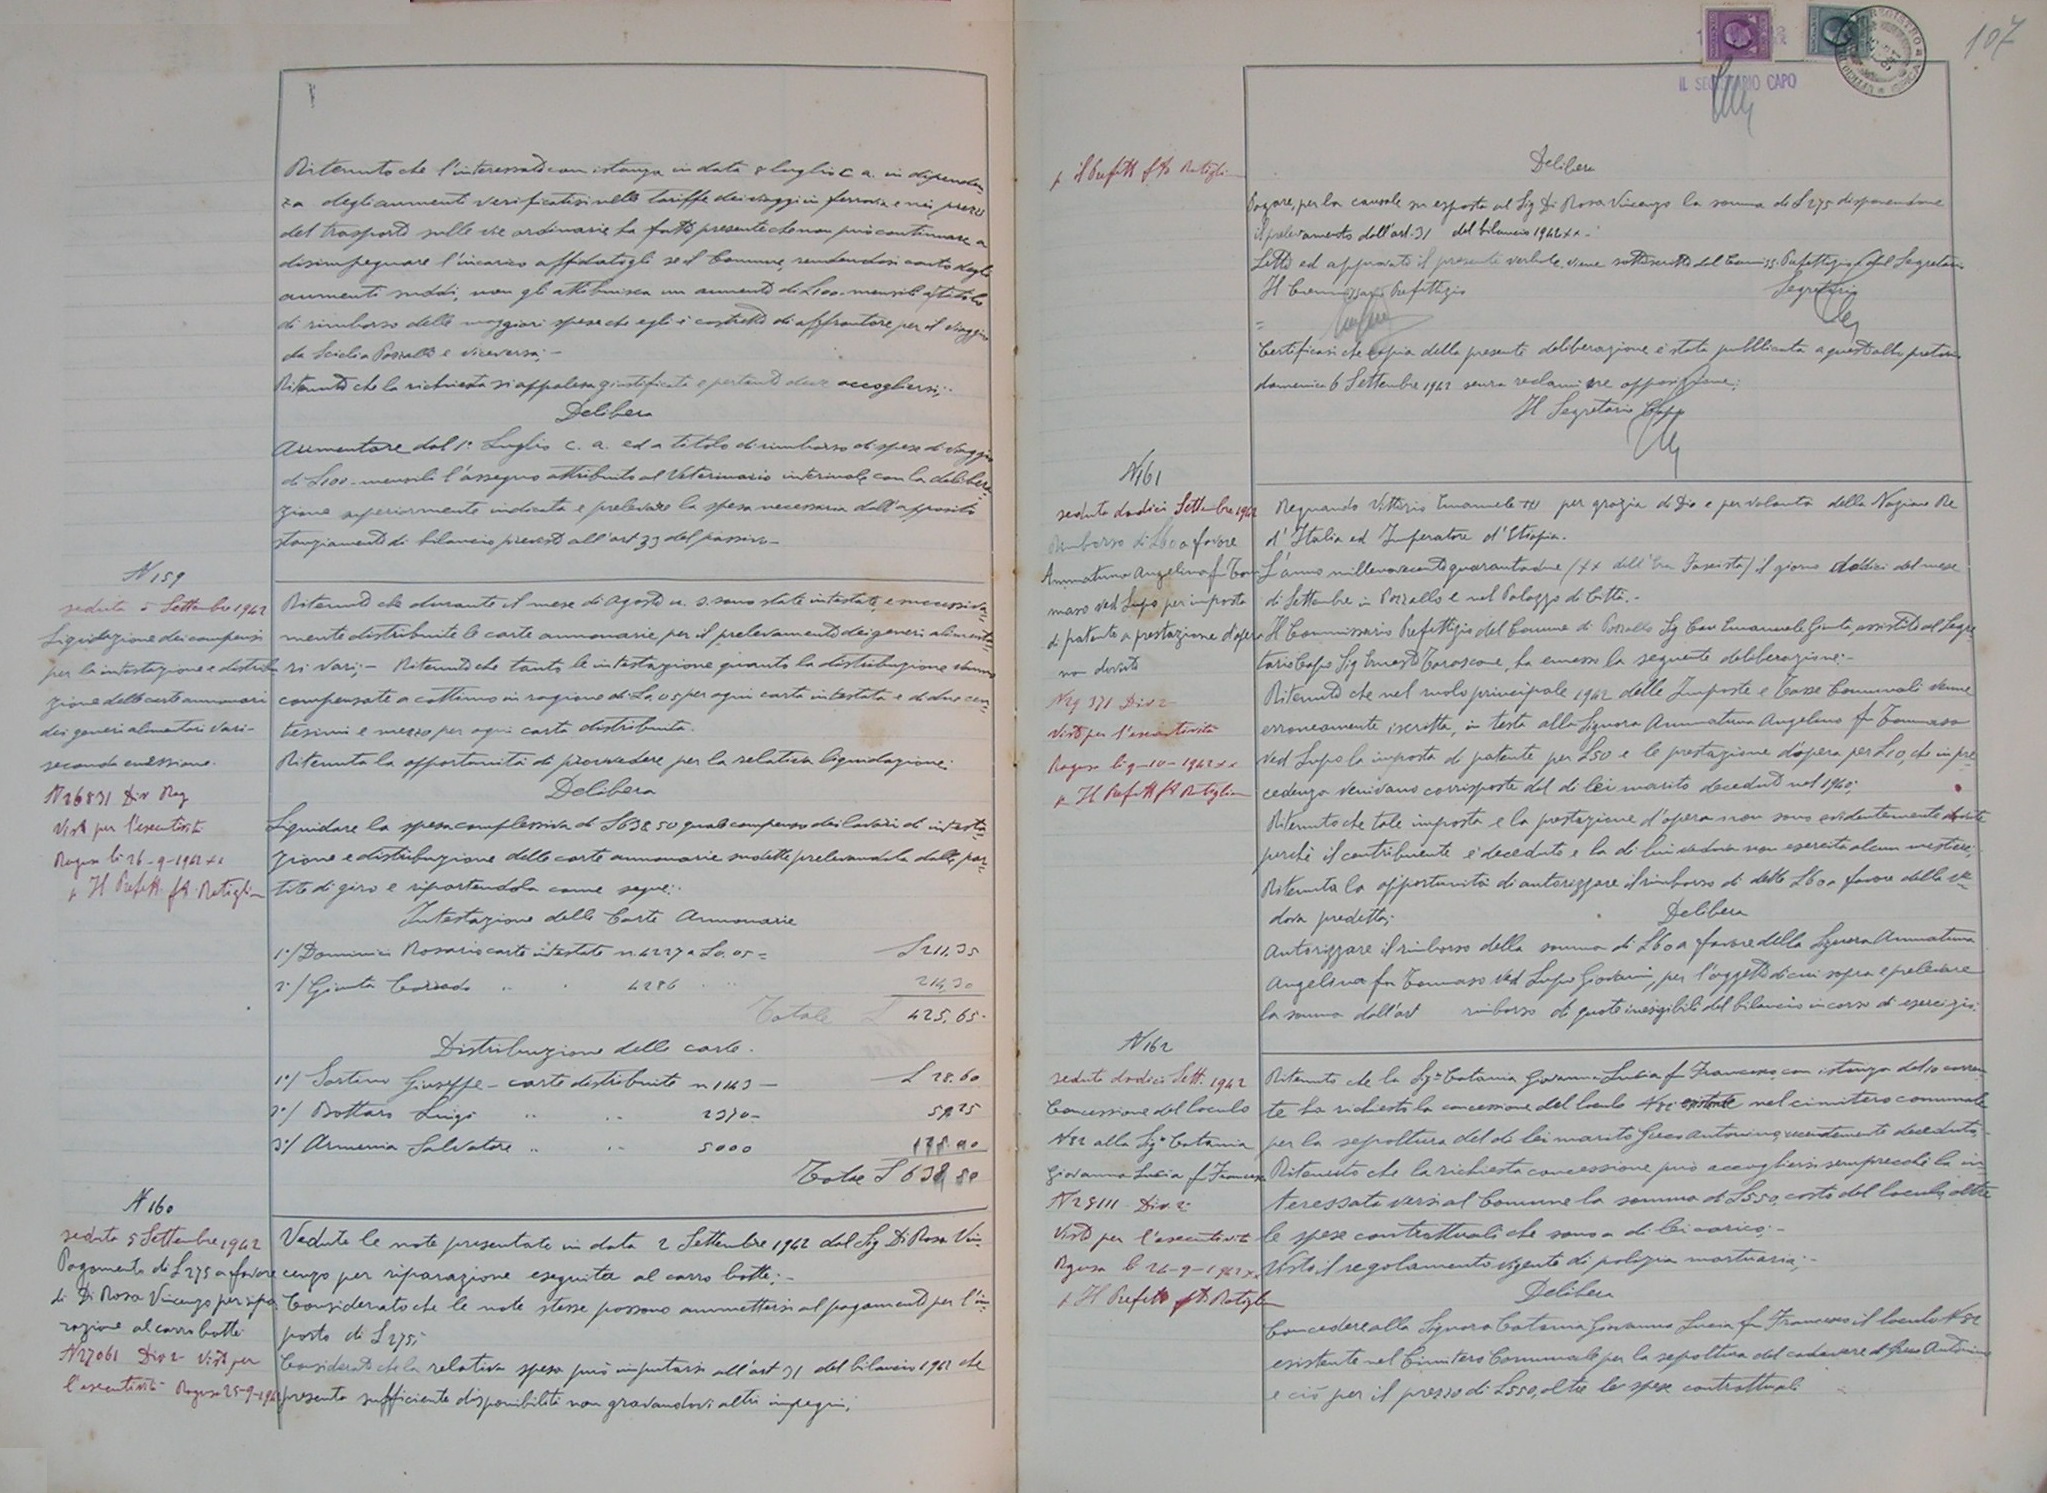 Ritenuto che l'interessato con istanza in data 8 luglio c. a. in dipenden-
za degli aumenti verificatisi nelle tariffe dei viaggi in ferrovia e nei prezzi
del trasporto sulle vie ordinarie ha fatto presente che non può continuare a
disimpegnare l'incarico affidatogli se il Comune, rendendosi conto degli
aumenti suddi, non gli attribuisca un aumento di £100 mensili a titolo
di rimborso delle maggiori spese che egli è costretto di affrontare per il viaggio
da Scicli a Pozzallo e viceversa;-
Ritenuto che la richiesta si appalesa giustificata e pertanto deve accogliersi;
Delibera
Aumentare dal 1° Luglio c. a. ed a titolo di rimborso di spese di viaggio
di £100 mensili l'assegno attribuito al Veterinario interinale con la delibera-
zione superiormente indicata e prelevare la spesa necessaria dall'apposito
stanziamento di bilancio previsto all'art 33 del passivo-
N 159
seduta 5 Settembre 1942
Liquidazione dei compensi
per la intestazione e distribu
zione delle carte annonarie
dei generi alimentari vari-
seconda emissione.
N 26831 Div Rag
Visto per l'esecutività
Ragusa li 26-9-1942 xx
p Il Prefetto f/to Ratiglia
Ritenuto che durante il mese di agosto u. s. sono state intestate, e successiva-
mente distribuite le carte annonarie per il prelevamento dei generi alimenta-
ri vari;- Ritenuto che tanto le intestazione quanto la distribuzione vanno
compensate a cottimo in ragione di £0.05 per ogni carta intestata e di due cen-
tesimi e mezzo per ogni carta distribuita.
Ritenuta la opportunità di provvedere per la relativa liquidazione;
Delibera
Liquidare la spesa complessiva di £638.50 quale compenso dei lavori di intesta-
zione e distribuzione delle carte annonarie suddette prelevandola dalle par-
tite di giro e ripartendola come segue:
Intestazione delle Carte Annonarie
1°/ Dominici Rosario carte intestate n. 4227 a £0.05= £ 211,35
2°/ Giunta Corrado " " 4286 " " 214,30
Totale £ 425,65.
Distribuzione delle carte.
1°/ Sortino Giuseppe - carte distribuite n 1143 - £ 28.60
2°/ Bottaro Luigi " " 2370-
3°/ Armenia Salvatore " " 5000
Totale £ 638 50
N 160
seduta 5 Settembre 1942
Pagamento di £275 a favore
di Di Rosa Vincenzo per ripa
razione al carro botte
N 27061 Div 2 Visto per
l'esecutività Ragusa 25-9-1942
Vedute le note presentate in data 2 Settembre 1942 dal Sig Di Rosa Vin-
cenzo per riparazione eseguita al carro botte;-
Considerato che le note stesse possono ammettersi al pagamento per l'im-
porto di £275;
Considerato che la relativa spesa può imputarsi all'art 31 del bilancio 1942 che
presenta sufficiente disponibilità non gravandovi altri impegni;
107
IL SEGRETARIO CAPO
p il Prefetto f/to Ratiglia
Delibera
Pagare, per la causale su esposta al Sig Di Rosa Vincenzo la somma di £275 disponendone
il prelevamento dall'art. 31 del bilancio 1942 xx -
Letto ed approvato il presente verbale, viene sottoscritto dal Commiss. Prefettizio e dal Segretario
Il Commissario Prefettizio Segretario
Certificasi che copia della presente deliberazione è stata pubblicata a quest'albo pretorio
domenica 6 Settembre 1942 senza reclami ne opposizione;
Il Segretario Capo
N 161
seduta dodici Settembre 1942
Rimborso di £60 a favore
Ammatuna Angelina fu Tom
maso ved Lupo per imposta
di patente e prestazione d'opera
non dovute
N 29371 Div 2
Visto per l'esecutività
Ragusa li 9-10-1942 xx
p Il Prefetto f/to Ratiglia
Regnando Vittorio Emanuele III per grazia di Dio e per volontà della Nazione Re
d'Italia ed Imperatore d'Etiopia.
L'anno millenovecentoquarantadue (XX dell'Era Fascista) il giorno dodici del mese
di Settembre in Pozzallo e nel Palazzo di Città.-
Il Commissario Prefettizio del Comune di Pozzallo Sig Cav Emanuele Giunta, assistito dal Segre
tario Capo Sig Ernesto Tarascone, ha emesso la seguente deliberazione:-
Ritenuto che nel ruolo principale 1942 delle Imposte e Tasse Comunali venne
erroneamente iscritta, in testa alla Signora Ammatuna Angelina fu Tommaso
ved Lupo la imposta di patente per £50 e le prestazione d'opera per £10, che in pre-
cedenza venivano corrisposte dal di lei marito deceduto nel 1940;
Ritenuto che tale imposta e la prestazione d'opera non sono evidentemente dovute
perchè il contribuente è deceduto e la di lui vedova non esercita alcun mestiere;
Ritenuta la opportunità di autorizzare il rimborso di dette £60 a favore della ve-
dova predetta;- Delibera
Autorizzare il rimborso della somma di £60 a favore della Signora Ammatuna
Angelina fu Tommaso ved Lupo Giovanni, per l'oggetto di cui sopra e prelevare
la somma dall'art rimborso di quote inesigibili del bilancio in corso di esercizio.
N 162
seduta dodici Sett. 1942
Concessione del loculo
N 82 alla Sig.a Catania
Giovanna Lucia fu Francesco
N 25111 Div. 2
Visto per l'esecutività
Ragusa li 26-9-1942 xx
p Il Prefetto f/to Ratiglia
Ritenuto che la Sig.a Catania Giovanna Lucia fu Francesco, con istanza del 10 corren-
te ha richiesto la concessione del loculo N 82 esistente nel cimitero comunale
per la sepoltura del di lei marito Greco Antonino, recentemente deceduto,
Ritenuto che la richiesta concessione può accogliersi sempreché la in-
teressata versi al Comune la somma di £550, costo del loculo, oltre
le spese contrattuali che sono a di lei carico;-
Visto il regolamento vigente di polizia mortuaria;-
Delibera
Concedere alla Signora Catania Giovanna Lucia fu Francesco il loculo N 82
esistente nel Cimitero Comunale per la sepoltura del cadavere di Greco Antonino
e ciò per il prezzo di £550, oltre le spese contrattuali